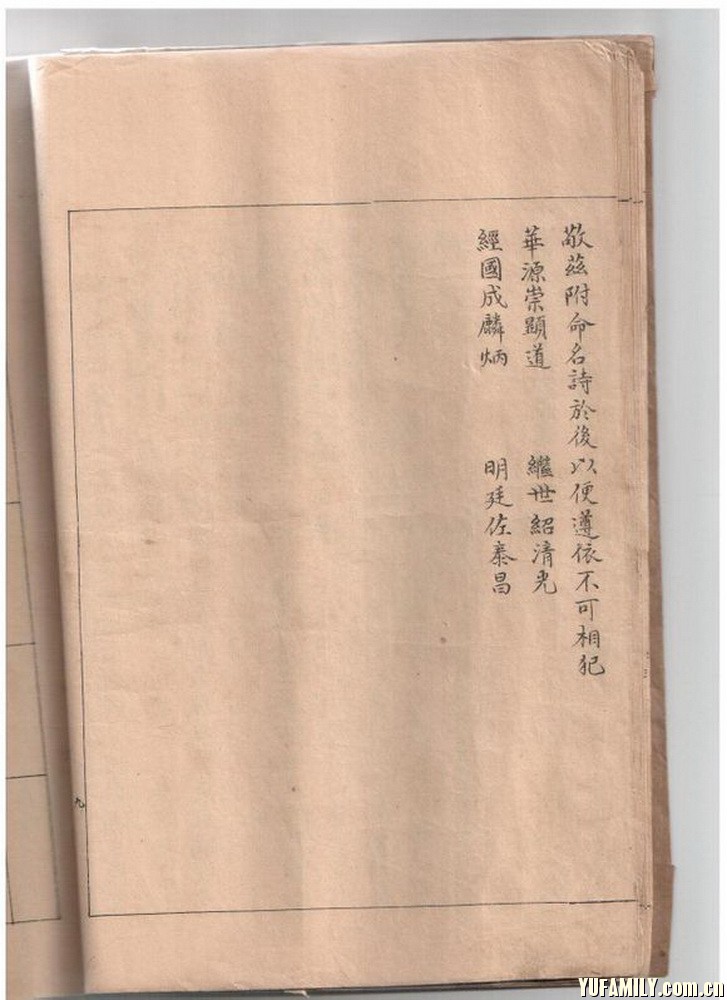 敬茲附命名詩於後以便遵依不可相犯
華源崇顯道　繼世紹清光
經國成麟炳　明廷佐泰昌
九
YUFAMILY.com.cn